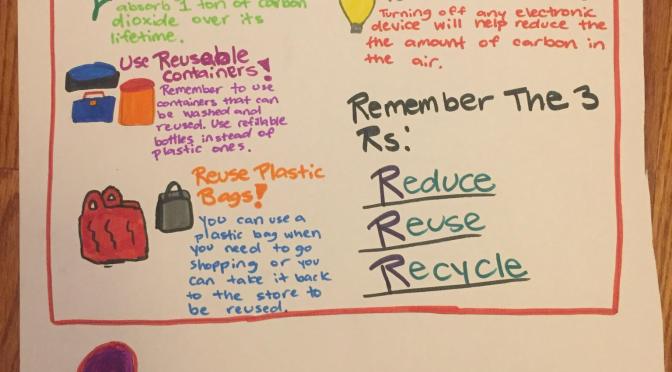 absorb 1 ton of carbon
dioxide over its
lifetime.
Use Reusable
Containers!
Remember to use
containers that can
be washed and
reused. Use refillable
bottles instead of
plastic ones.
Reuse Plastic
Bags!
You can use a
plastic bag when
you need to go
shopping or you
can take it back
to the store to
be reused.
Turning off any electronic
device will help reduce the
the amount of carbon in
the air.
Remember The 3
Rs:
Reduce
Reuse
Recycle